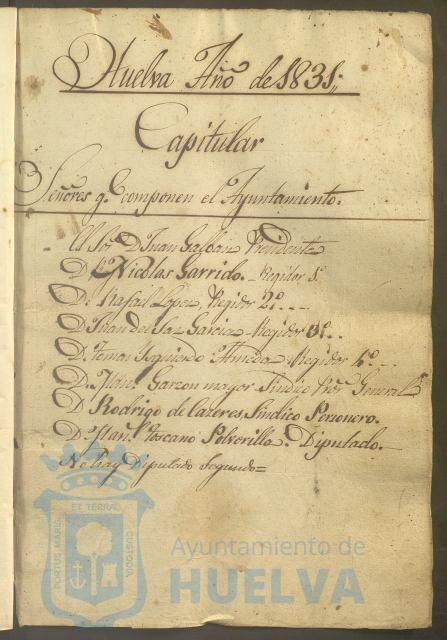 Huelva Año de 1831,,
Capitular
Señores q. Componen el Ayuntamiento.
El Sor. D. Juan Galban Presidente
D. Nicolas Garrido. - Regidor 1º
D. Rafael Lopez, Regidor 2º. - -
D. Juan del Garcia - Regidor 3º. .
D. Tomas Ysquierdo Almeda, Regidor 4º. - -
D. Garzon mayor Sindico Pror. General
D Rodrigo de Cazeres, Sindico Personero.
D. Toscano Polverillo. Diputado. -
No hay Diputado Segundo =
PORTUS MARIS
ET TERRAE
CUSTODIA
Ayuntamiento de
HUELVA